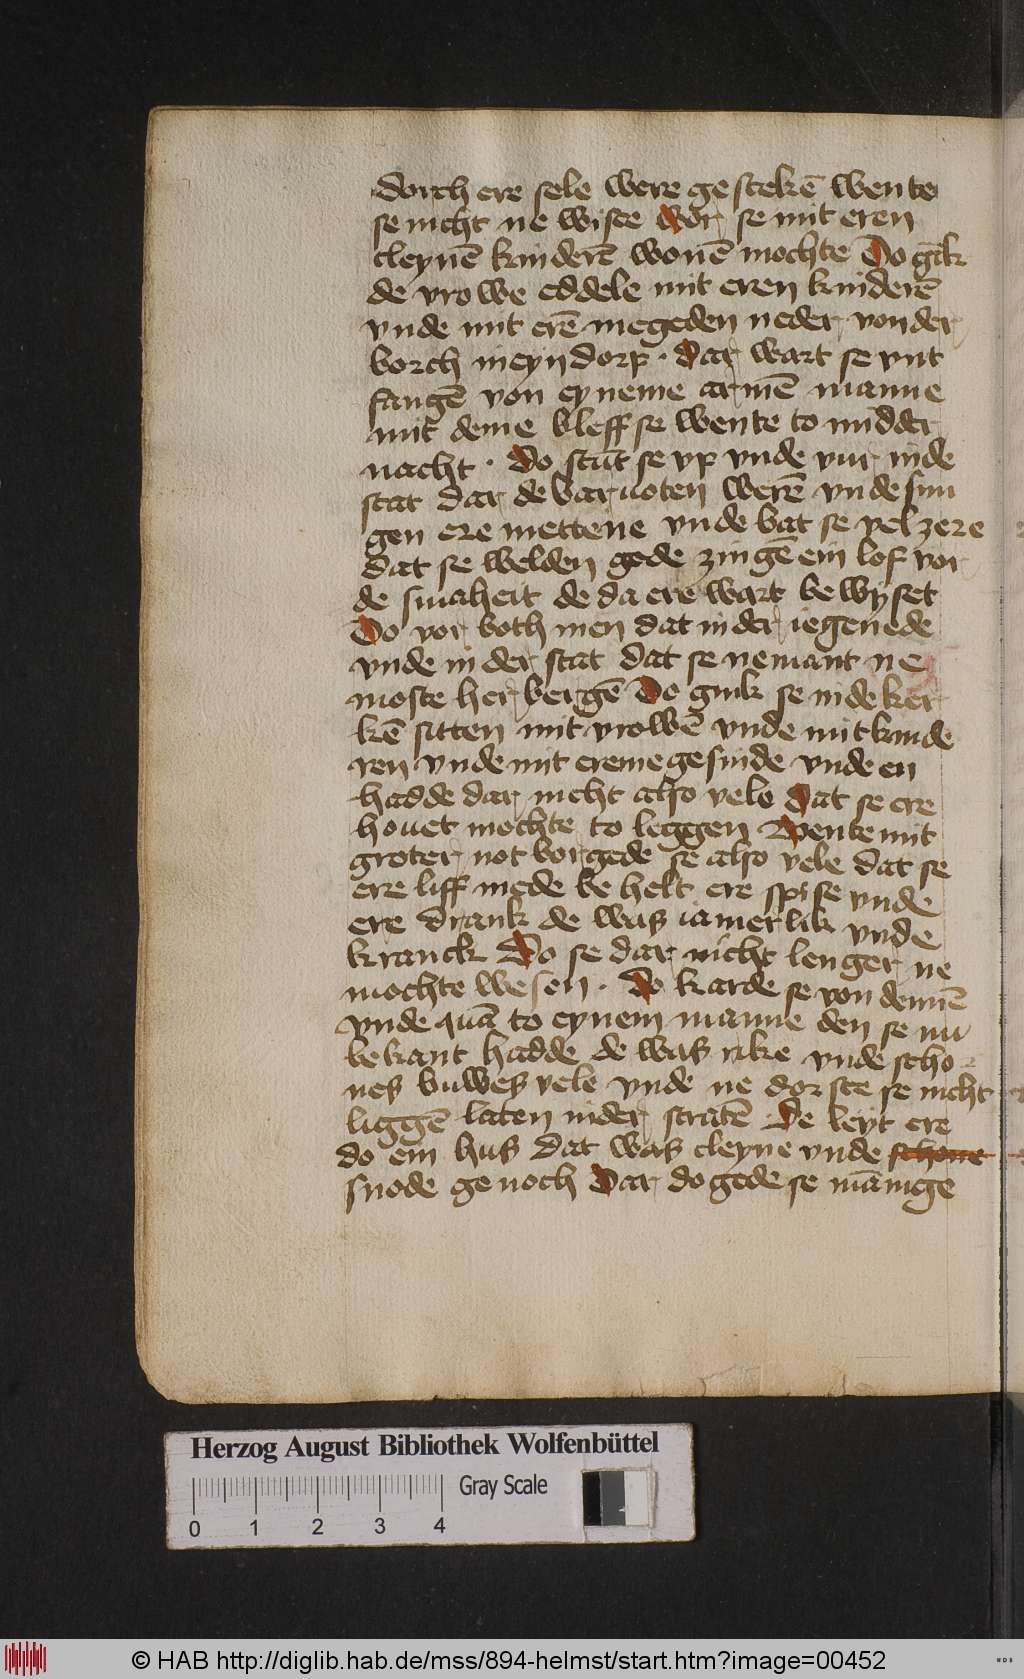 dorch ere sele were gestekē wente
se nicht ne wiste wor se mit eren
cleynē kinderē wonē mochte Do gīk
de vrowe eddele mit eren kinderē
vnde mit erē megeden neder von der
borch in eyn dorp · dar wart se vnt
fangē von eyneme armē manne
mit deme bleff se wente to midder
nacht · do stūt se vp vnde vur in de
stat dar de baruoten werē vnde sun
gen ere mettene vnde bat se vel zere
dat se welden gode zingē ein lof vor
de smaheit de da ere wart bewyset
Do vor both men dat in der iegenede
vnde in der stat dat se nemant ne
moste herbergē Do gink se in de ker
kē sitten mit vrowē vnde mit kinde
ren vnde mit ereme gesinde vnde en
hadde dar nicht also vele dat se ere
houet mochte to leggen Wente mit
groter not borgede se also vele dat se
ere liff mede be helt ere spise vnde
ere drank de was iamerlik vnde
kranck Do se dar nicht lenger ne
mochte wesen · do karde se von dennē
vnde quā to eynem manne den se nu
bekant hadde de was rike vnde scho
nes buwes vele vnde ne dorste se nicht
liggē laten in der stratē De leyt ere
do ein hus dat was cleyne vnde schone
snode genoch Dar dogede se mānige
Herzog August Bibliothek Wolfenbüttel
Gray Scale
0 1 2 3 4
© HAB http://diglib.hab.de/mss/894-helmst/start.htm?image=00452